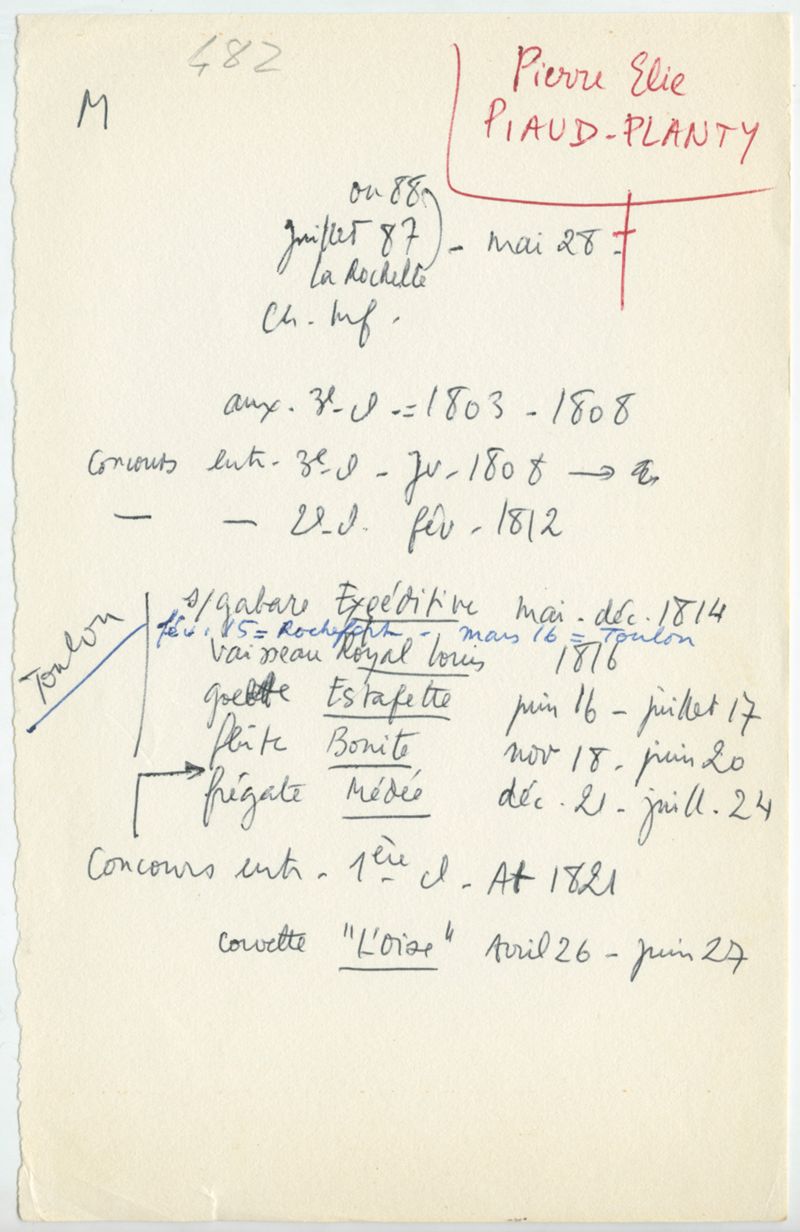 482
M
Pierre Elie
PIAUD-PLANTY
ou 88
juillet 87) - mai 28 =
la Rochelle
Ch. Inf.
aux. 3e cl -= 1803 - 1808
Concours entr. 3e cl - Jv - 1808 →
— — 2e cl. fév - 1812
Toulon
s/gabare Expéditive mai - déc. 1814
fév. 15 = Rochefort - mars 16 = Toulon
vaisseau Royal Louis 1816
goelette Estafette juin 16 - juillet 17
flûte Bonite nov 18 - juin 20
frégate Médée déc. 21 - juill. 24
Concours entr. 1ère cl - At 1821
corvette "L'Oise" Avril 26 - juin 27